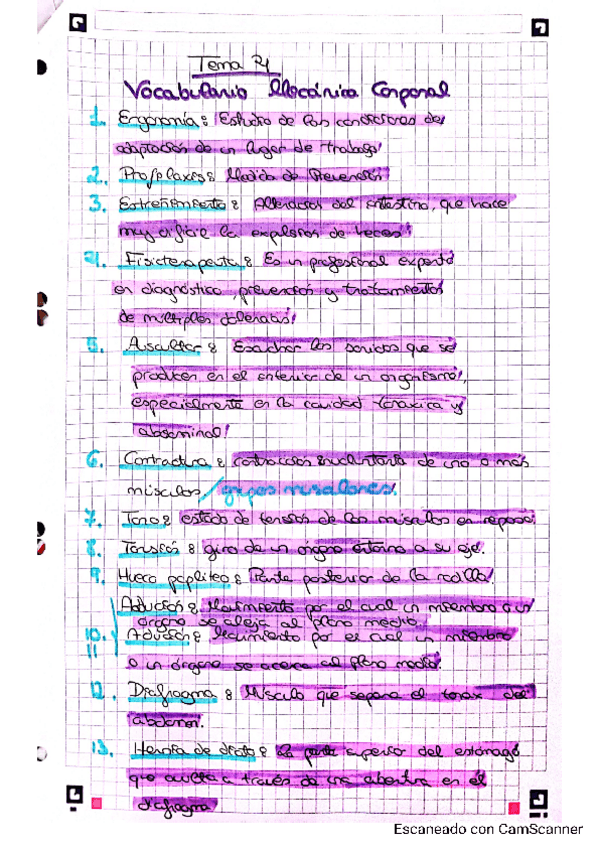 Tema 4
Vocabulario Mecánica Corporal
1. Ergonomía: Estudio de las condiciones de
adaptación de un lugar de trabajo
2. Profilaxis: Medida de Prevención
3. Estreñimiento: Alteración del intestino, que hace
muy dificil la expulsión de heces
4. Fisioterapeuta: Es un profesional experto
en diagnóstico, prevención y tratamientos
de múltiples dolencias
5. Auscultar: Escuchar los sonidos que se
producen en el interior de un organismo,
especialmente en la cavidad toraxica y
abdominal
6. Contractura: contracción involuntaria de uno o más
músculos / grupos musculares.
7. Tono: estado de tensión de los músculos en reposo.
8. Torsión: giro de un órgano entorno a su eje.
9. Hueco popliteo: Parte posterior de la rodilla.
Abducción: Movimiento por el cual un miembro o un
órgano se aleja al plano medio.
10. Aducción: Movimiento por el cual un miembro
11
o un órgano se acerca al plano medio.
12. Diafragma: Músculo que separa el torax del
abdomen.
13. Hernia de hiato: La parte superior del estómago
que a través de una abertura en el
diafragma
Escaneado con CamScanner